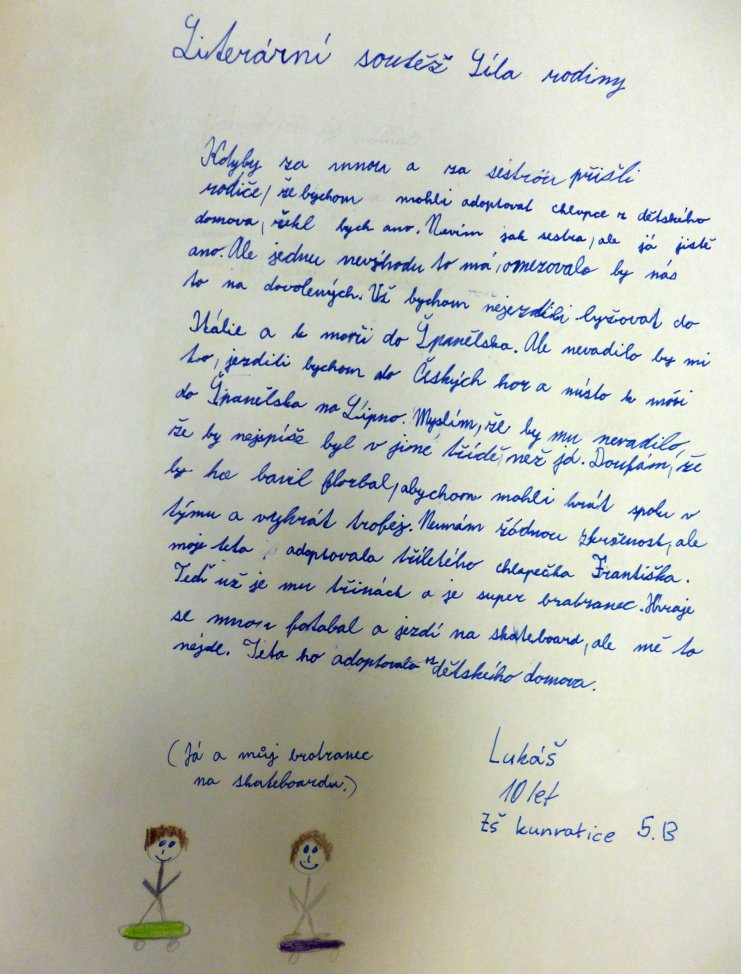 Literární soutěž Síla rodiny
Kdyby za mnou a za sestrou přišli
rodiče, že bychom mohli adoptovat chlapce z dětského
domova, řekl bych ano. Nevím jak sestra, ale já jistě
ano. Ale jednu nevýhodu to má, omezovalo by nás
to na dovolených. Už bychom nejezdili lyžovat do
Itálie a k moři do Španělska. Ale nevadilo by mi
to, jezdili bychom do Českých hor a místo k moři
do Španělska na Lipno. Myslím, že by mu nevadilo,
že by nejspíše byl v jiné třídě než já. Doufám, že
by ho bavil florbal, abychom mohli hrát spolu v
týmu a vyhrát trofej. Nemám žádnou zkušenost, ale
moje teta adoptovala tříletého chlapečka Františka.
Teď už je mu třináct a je super bratranec. Hraje
se mnou fotabal a jezdí na skateboard, ale mě to
nejde. Teta ho adoptovala z dětského domova.
(Já a můj bratranec
na skateboardu.)
Lukáš
10 let
ZŠ kunratice 5.B